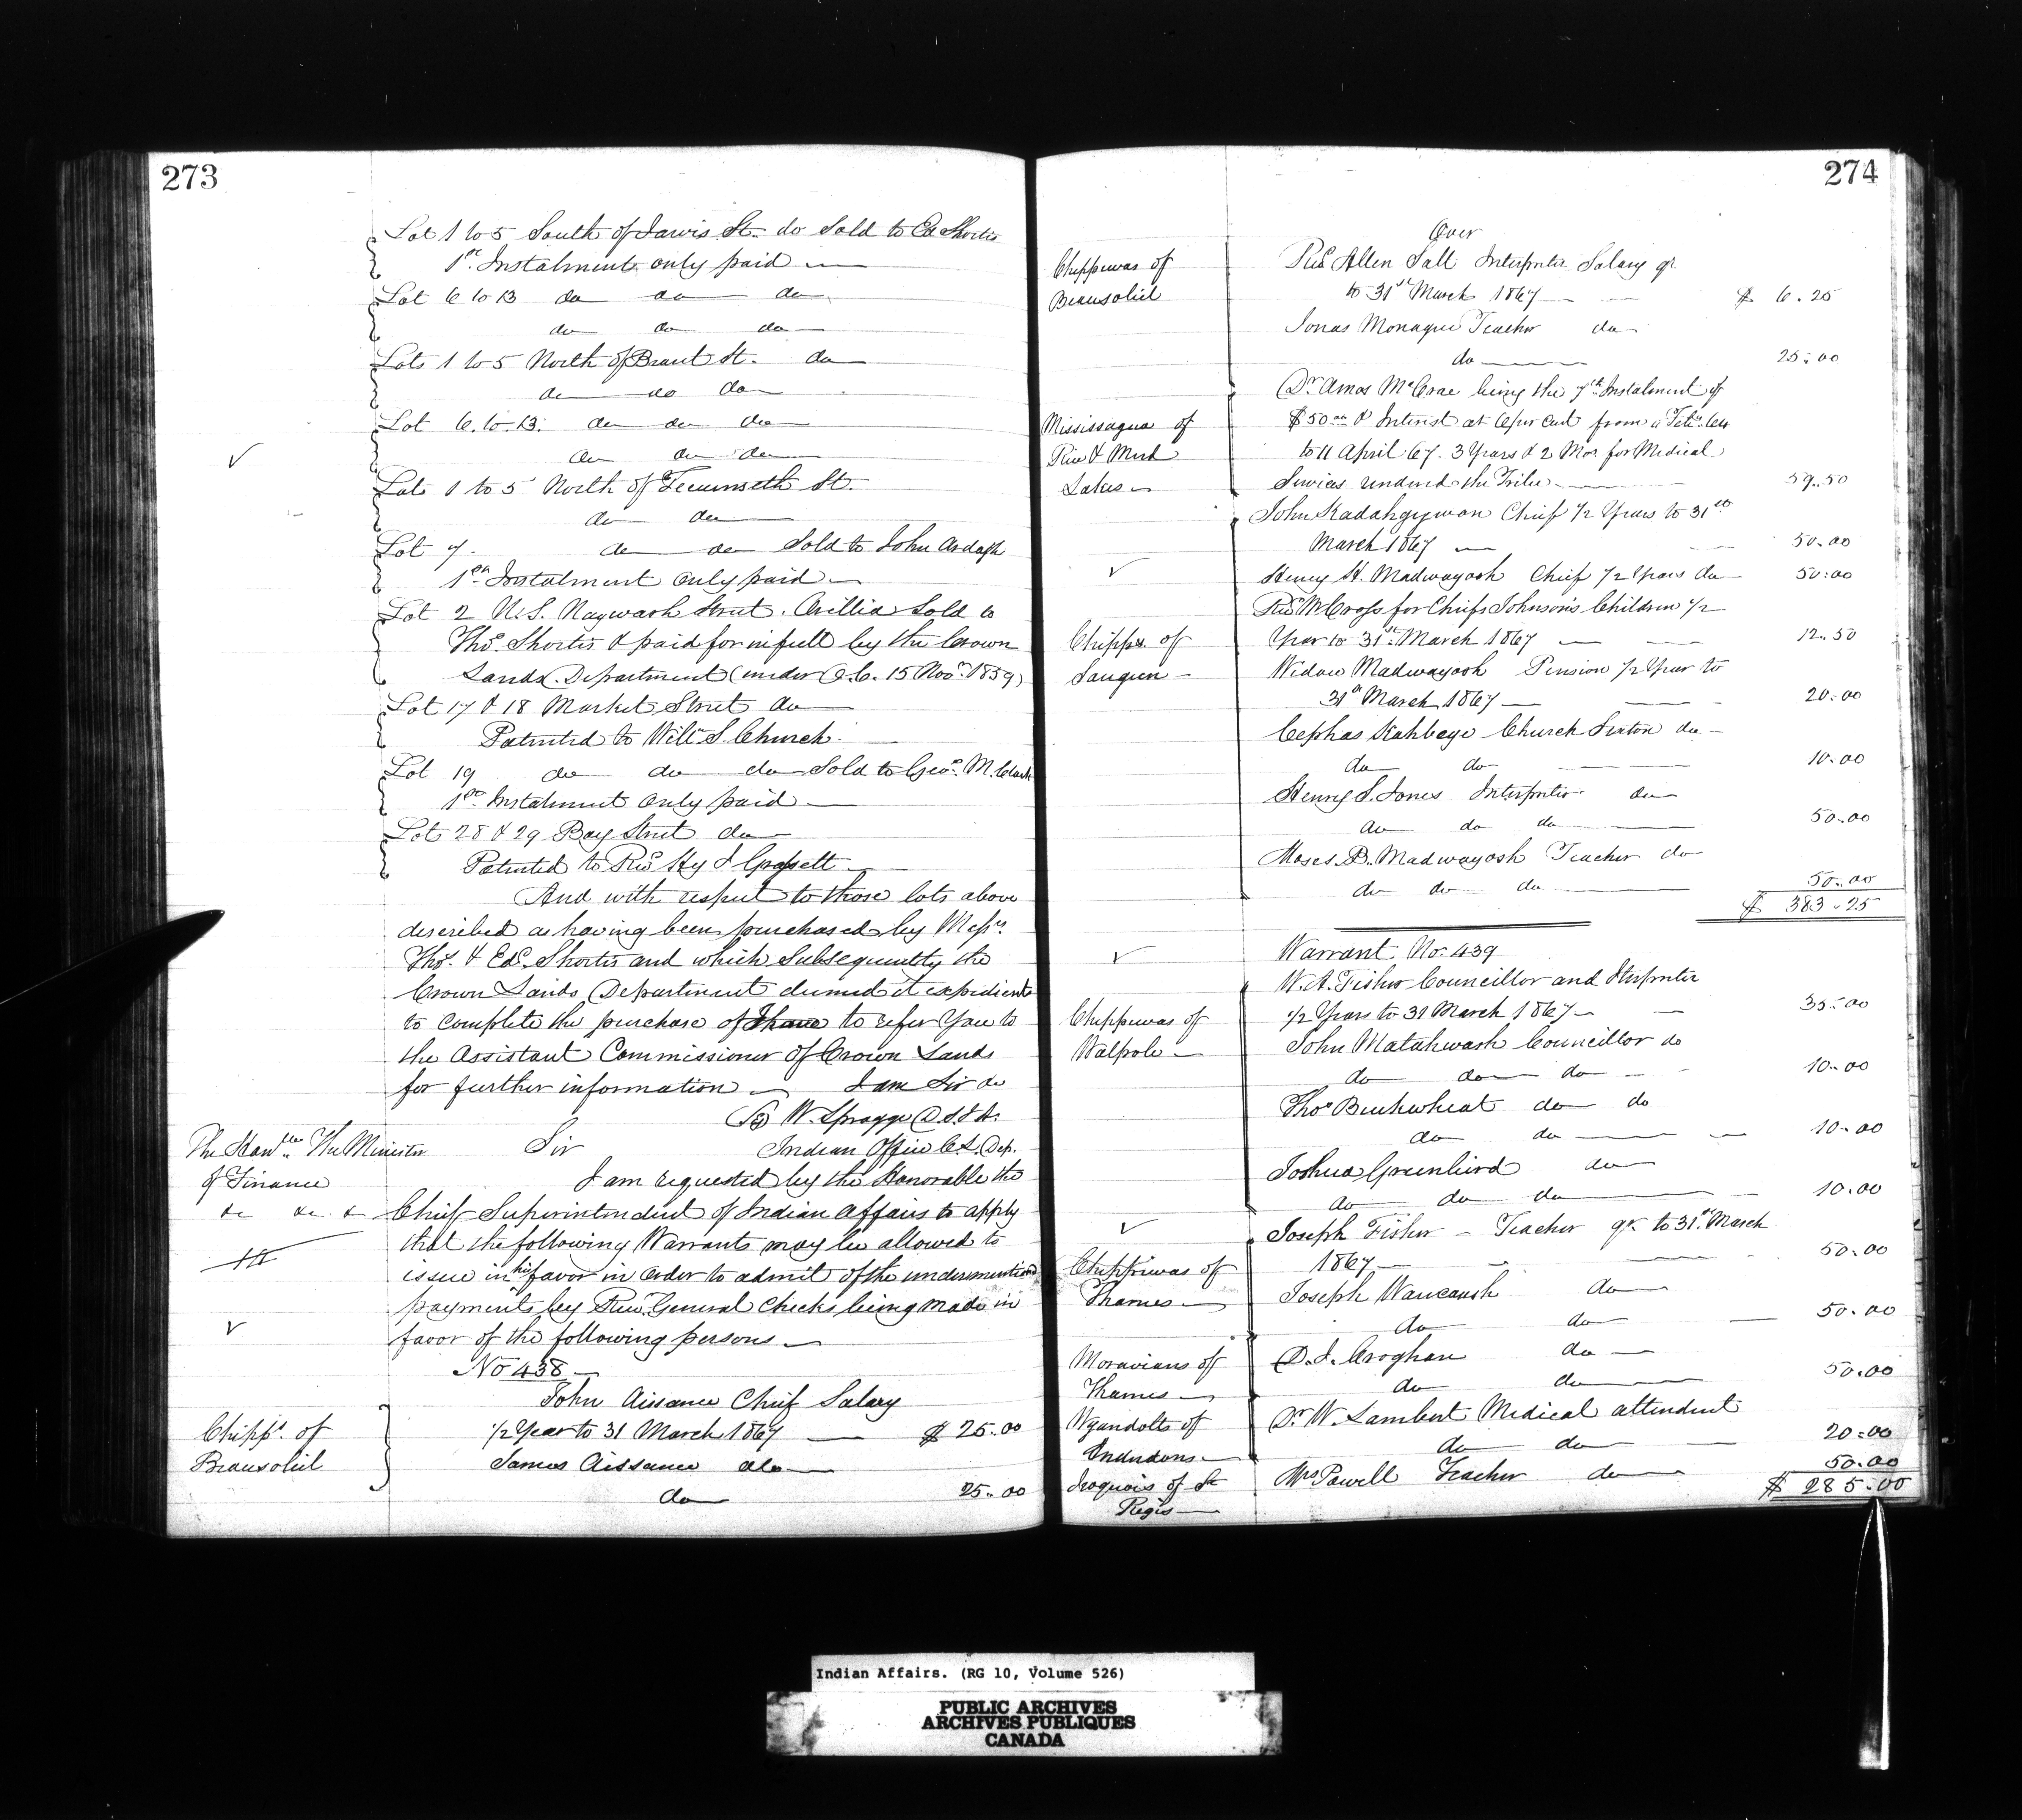 273
Lot 1 to 5 South of Jarvis St. do Sold to Ed Shortis
1st. Instalment only paid —
Lot 6 to 13 do do do
do do do
Lots 1 to 5 North of Brant St. do
do do do
Lot 6. to 13. do do do
do do do
Lots 1 to 5 North of Tecumseth St.
do do
Lot 7. do do Sold to John Ardagh
1st Instalment only paid —
Lot 2 N.S. Naywash Street. Orillia Sold to
Thos. Shortis & paid for in full by the Crown
Lands Department (under O.C. 15 Nov. 1859)
Lot 17 & 18 Market Street do
Patented to Will. S. Church.
Lot 19 do do do Sold to Geo. M. Clark
1st Instalment only paid —
Lots 28 & 29 Bay Street do
Patented to Revd Hy J Grassett —
And with respect to those lots above
described as having been purchased by Messrs.
Thos. & Ed. Shortis and which Subsequently the
Crown Lands Department deemed it expedient
to complete the purchase of to refer You to
the Assistant Commissioner of Crown Lands
for further information — I am Sir &c
W. Spragge D.S.I.A.
The Honble. The Minister
of Finance
&c &c &
Sir Indian Office C.L. Dep.
I am requested by the Honorable the
Chief Superintendent of Indian Affairs to apply
that the following Warrants may be allowed to
issue in his favor in order to admit of the undermentioned
payments by Recr. General Checks being made in
favor of the following persons —
No 438 —
John Aissance Chief Salary
Chipps. of
Beausoliel
1/2 Year to 31 March 1867 — $ 25.00
James Aissance do
do 25.00
274
Over
Chippewas of
Beausoliel
Revd Allen Salt Interpreter Salary qr
to 31st March 1867 — $ 6.25
Jonas Monague Teacher do
do 25.00
Mississagua of
Rice & Mud
Lakes —
Dr. Amos McCrae being the 7th Instalment of
$50.00 & Interest at 6 per Cent from 11 Feby. 64
to 11 April 67. 3 Years & 2 Mos for Medical
Services rendered the Tribe 59.50
John Kadahgegwon Chief 1/2 Years to 31st
March 1867 — 50.00
Henry H. Madwayosh Chief 1/2 Years do 50.00
Chipps of
Saugeen —
Revd. McCross for Chief Johnson's Children 1/2
Year to 31st. March 1867 — 12.50
Widow Madwayosh Pension 1/2 Year to
31st March 1867 — 20.00
Cephas Kahbege Church Sexton do —
do do 10.00
Henry S. Jones Interpreter do
do do do 50.00
Moses B. Madwayosh Teacher do
do do do 50.00
$ 383.25
Warrant No. 439
Chippewas of
Walpole —
W.A. Fisher Councillor and Interpreter
1/2 Years to 31 March 1867 — 35.00
John Matahwash Councillor do
do do do — 10.00
Thos Buckwheat do do
do do — 10.00
Joshua Greenbird do
do do do 10.00
Chippewas of
Thames —
Joseph Fisher — Teacher qr. to 31st. March
1867 — 50.00
Joseph Waucaush do
do do 50.00
Moravians of
Thames —
D.J. Croghan do —
do do 50.00
Wyandotts of
Anderdon —
Dr. W. Lambert Medical attendent
do do 20.00
Iroquois of St
Regis —
Mrs Powell Teacher do 50.00
$ 285.00
Indian Affairs. (RG 10, Volume 526)
PUBLIC ARCHIVES
ARCHIVES PUBLIQUES
CANADA